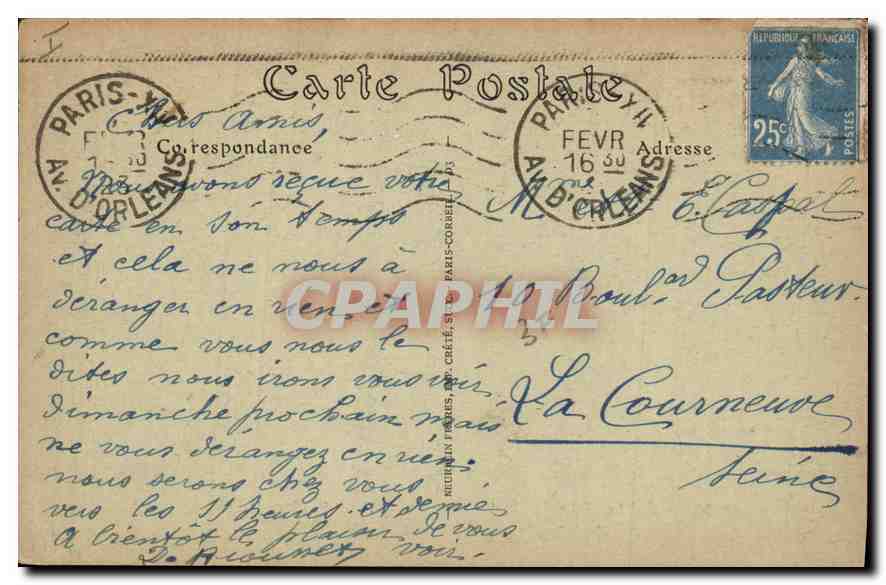 I
Carte Postale
RÉPUBLIQUE FRANÇAISE
25c
POSTES
PARIS-XIV
Av. D'ORLEANS
PARIS-XIV
FEVR
16 30
Av. D'ORLEANS
Correspondance
Adresse
Chers Amis,
Nous avons reçue votre
carte en son temps
et cela ne nous à
déranger en rien et
comme vous nous le
dites nous irons vous voir
dimanche prochain mais
ne vous dérangez en rien
nous serons chez vous
vers les 11 heures et demie
A bientôt le plaisir de vous
voir.
NEURDEIN FRÈRES, IMP. CRÉTÉ, SUCC. PARIS-CORBEIL
E. Caspal
Boul.ard Pasteur.
34
La Courneuve
Seine
CPAPHIL